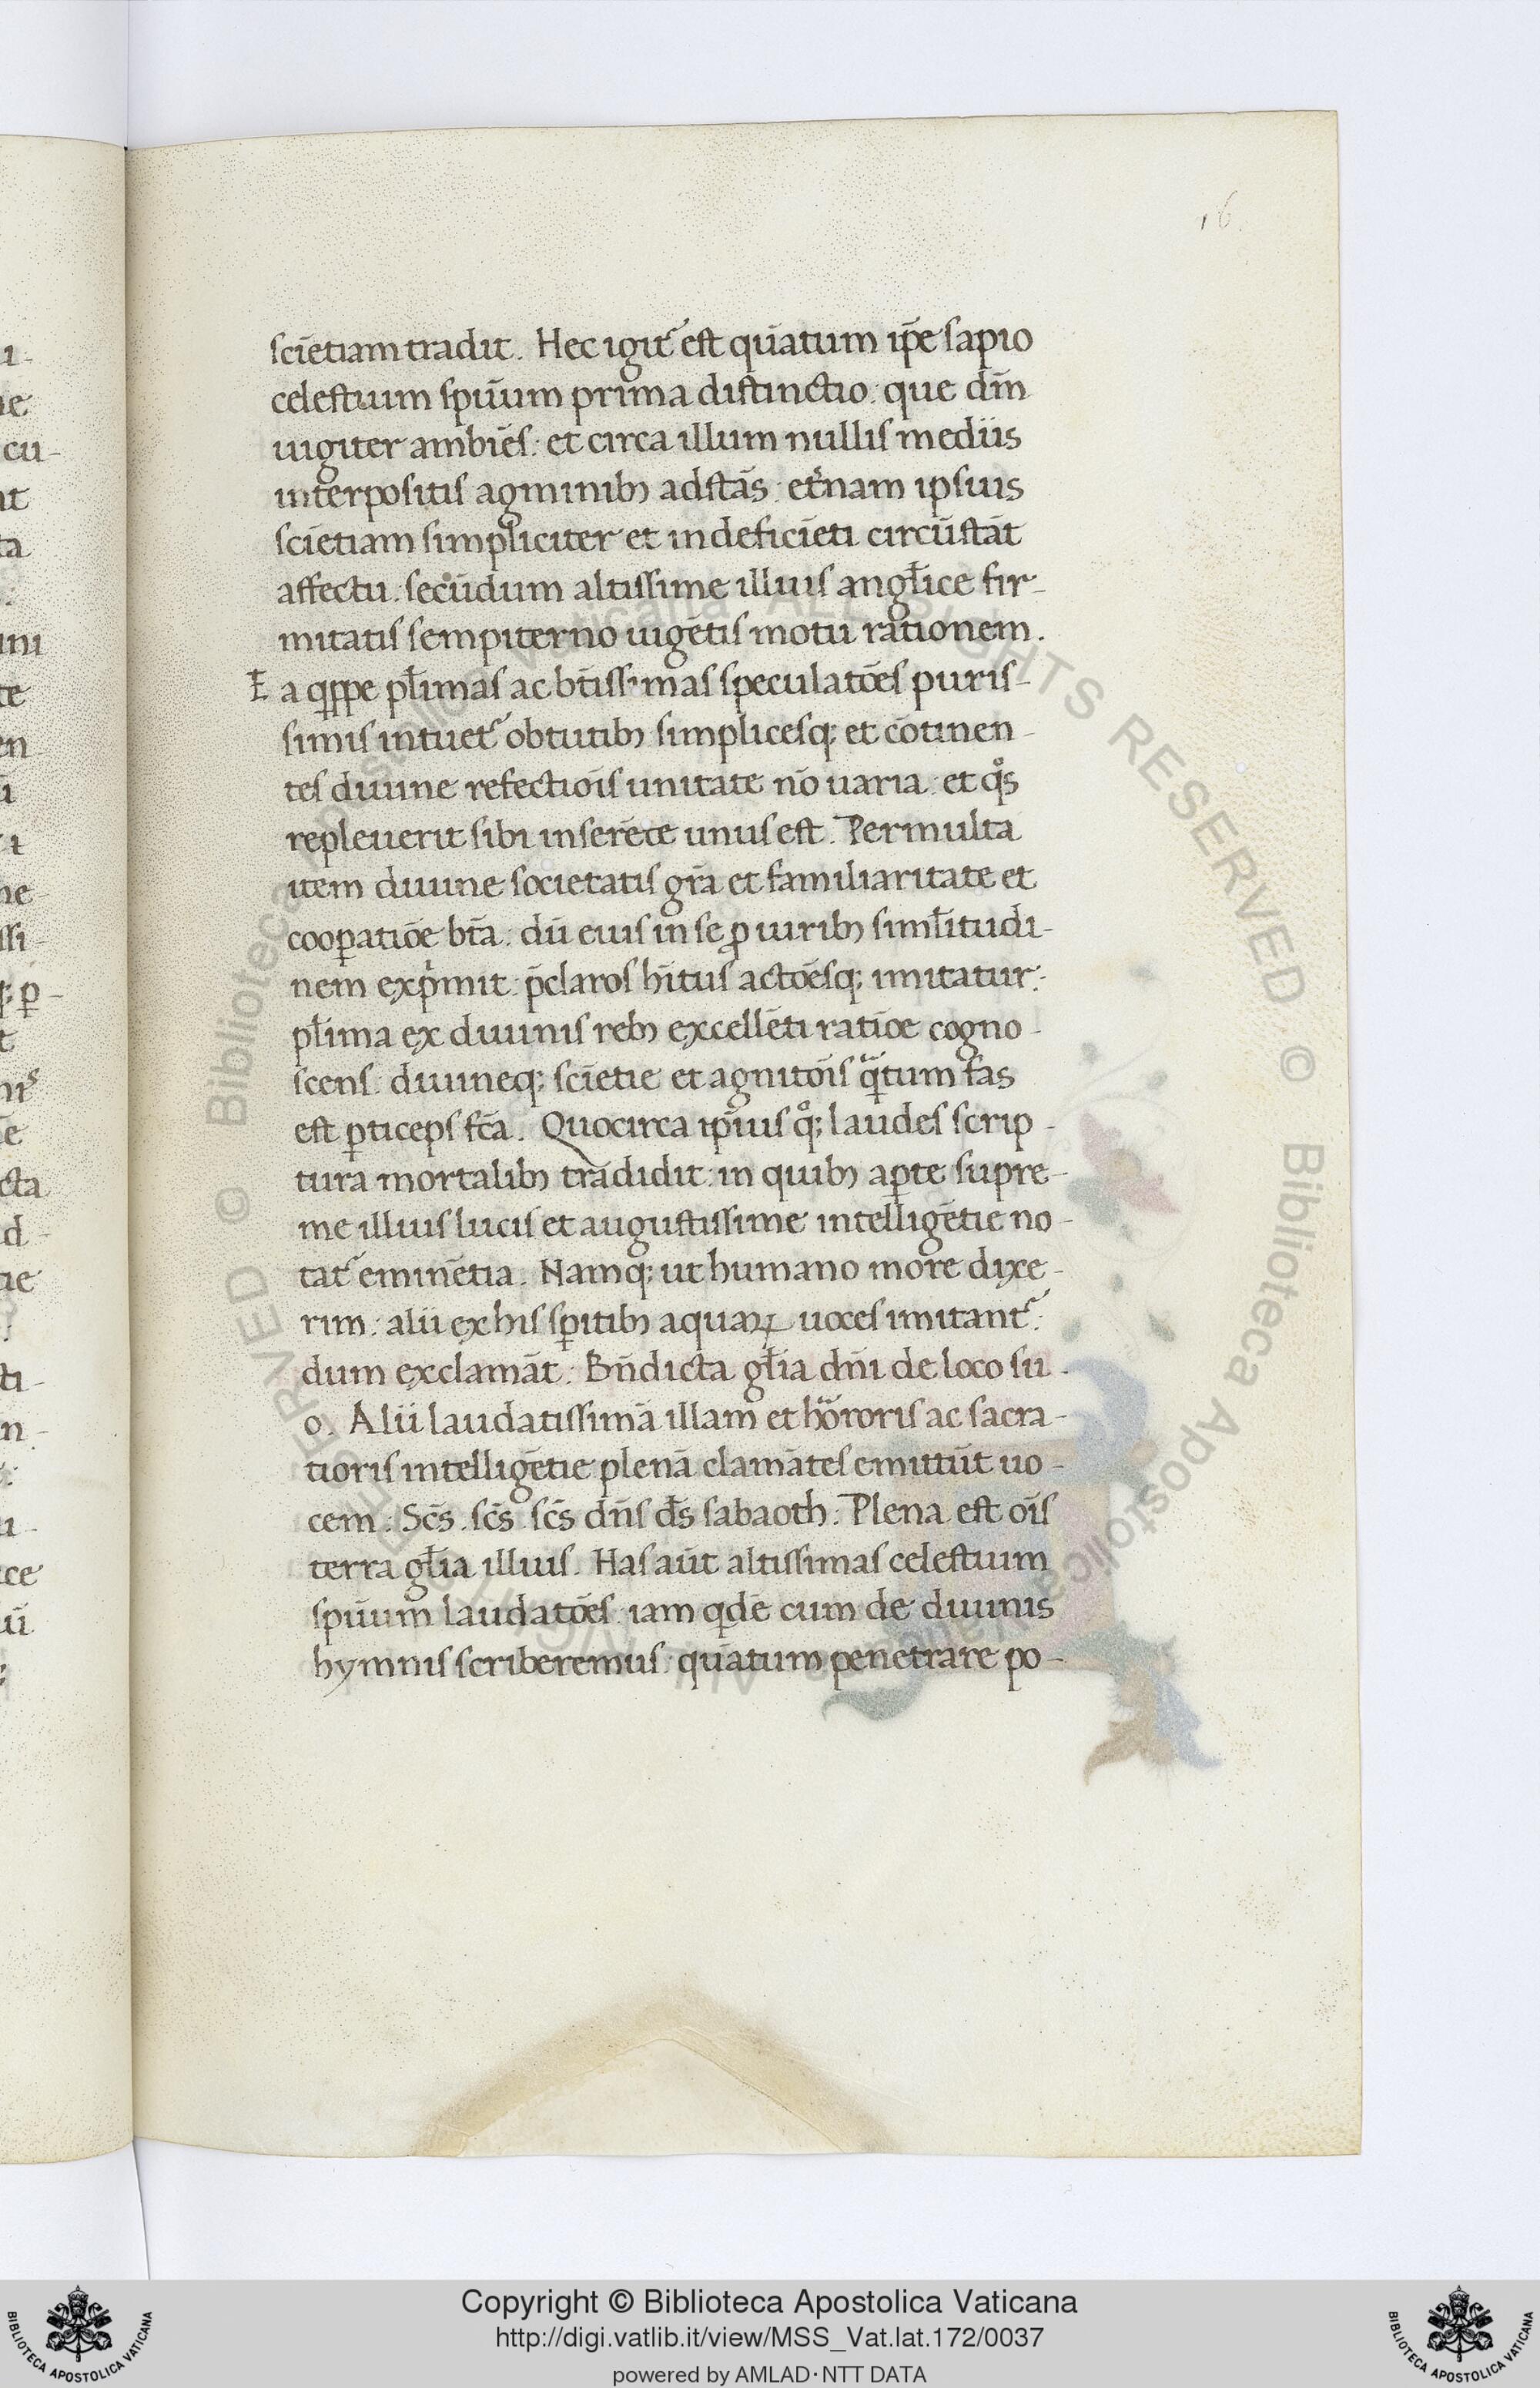 16
scīetiam tradit. Hec igit᷑ est quātum ip̄e sapio
celestium sp̄iuum prima distinctio: que dm̄
iugiter ambiēs: et circa illum nullis mediis
interpositis agminibꝫ adstās: et̓nam ipsuis
scīetiam simpliciter et indeficiēti circūstāt
affectu: secūdum altissime illius angl̄ice fir-
mitatis sempiterno uigētis motu rationem.
Ea qꝑpe pl̄imas ac bt̄issimas speculatōes puris-
simis intuet᷑ obtutibꝫ simplicesqꝫ et cōtinen-
tes diuine refectiōis unitate nō uaria: et qͦs
repleuerit sibi inserēte unus est. Permulta
item diuine societatis gr̄a et familiaritate et
cooꝑatiōe bt̄a: dū eius in se ꝓ uiribꝫ siml̄itudi-
nem exp̓mit: p̄claros hītus actōesqꝫ imitatur:
pl̄ima ex diuinis rebꝫ excellēti ratiōe cogno-
scens: diuineqꝫ scīetie et agnitōis qᷓtum fas
est ꝑticeps fc̄a. Quocirca ip̄ius qͦꝫ laudes scrip-
tura mortalibꝫ tradidit: in quibꝫ aꝑte supre-
me illius lucis et augustissime intelligētie no-
tat᷑ eminētia. Namqꝫ ut humano more dixe-
rim: alii ex his sꝑitibꝫ aquaꝝ uoces imitant᷑:
dum exclamāt: Bn̄dicta gl̄ia dn̄i de loco su-
o. Alii laudatissimā illam et hōroris ac sacra-
tioris intelligētie plenā clamātes emittūt uo-
cem: Sc̄s. sc̄s. sc̄s dn̄s ds̄ sabaoth: Plena est oīs
terra gl̄ia illius. Has aūt altissimas celestium
sp̄iuum laudatōes: iam qͥdē cum de diuinis
hymnis scriberemus: quātum penetrare po-
Copyright © Biblioteca Apostolica Vaticana
http://digi.vatlib.it/view/MSS_Vat.lat.172/0037
powered by AMLAD·NTT DATA